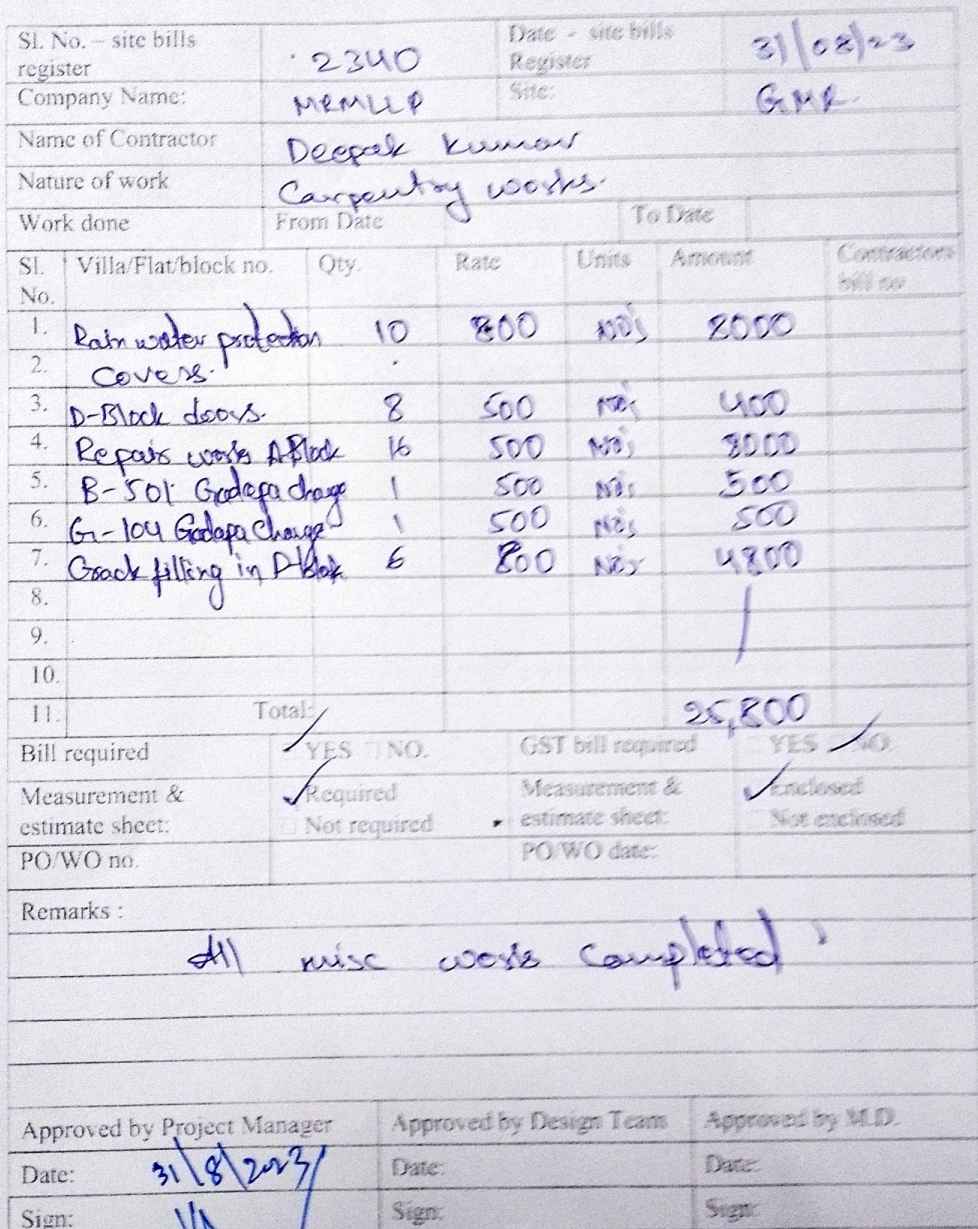 Sl. No. – site bills register 2340 Date - site bills Register 31/08/23
Company Name: MRMLLP Site: GMR
Name of Contractor Deepak Kumar
Nature of work Carpentry works.
Work done From Date To Date
Sl. No. Villa/Flat/block no. Qty. Rate Units Amount Contractors bill no
1. Rain water protection 10 800 No's 8000
2. covers.
3. D-Block doors. 8 500 No's 400
4. Repair works A-Block 16 500 No's 8000
5. B-501 Gadapa charge 1 500 No's 500
6. G-104 Gadapa charge 1 500 No's 500
7. Crack filling in D-blok 6 800 No's 4800
8.
9.
10.
11. Total: 25,800
Bill required YES NO. GST bill required YES NO.
Measurement & estimate sheet: Required Measurement & estimate sheet: Enclosed
Not required Not enclosed
PO/WO no. PO/WO date:
Remarks :
All misc works completed
Approved by Project Manager Approved by Design Team Approved by M.D.
Date: 31/8/2023 Date: Date:
Sign: Sign: Sign: